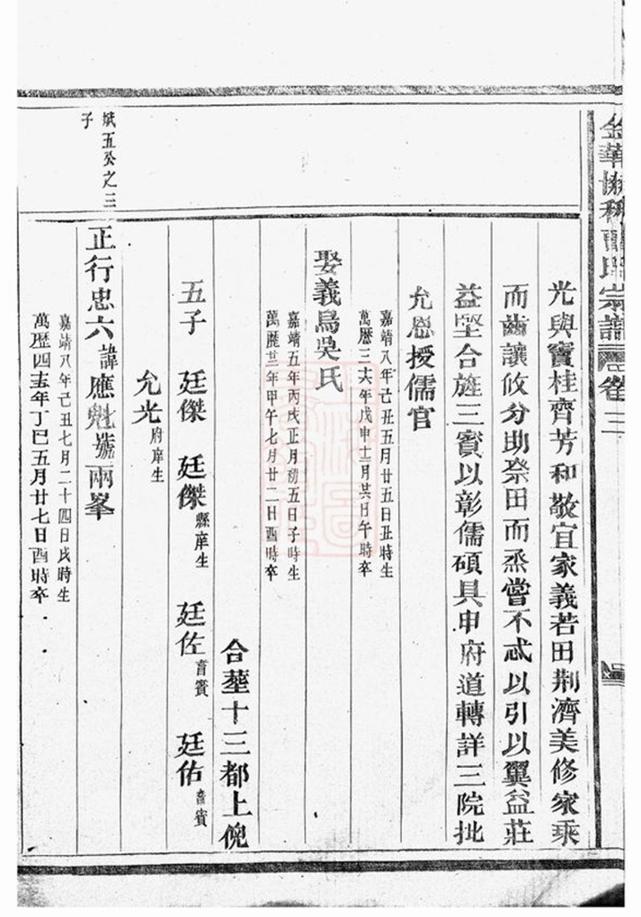 光與竇桂齊芳和敬宜家義若田荆濟美修家乘
而齒讓攸分助祭田而烝嘗不忒以引以翼益莊
益堅合旌三賓以彰儒碩具申府道轉詳三院批
允恩授儒官
嘉靖八年己丑五月廿五日丑時生
萬歷三六年戊申十二月廿日午時卒
娶義烏吳氏
嘉靖五年丙戌正月初五日子時生
萬歷廿二年甲午七月廿二日酉時卒
合葬十三都上倪
五子 廷傑 廷傑縣庠生 廷佐賓 廷佑賓
允光府庠生
斌五公之三
子
正行忠六諱應魁號兩峯
嘉靖八年己丑七月二十四日戌時生
萬歷四五年丁巳五月廿七日酉時卒
金華 氏宗譜 卷三